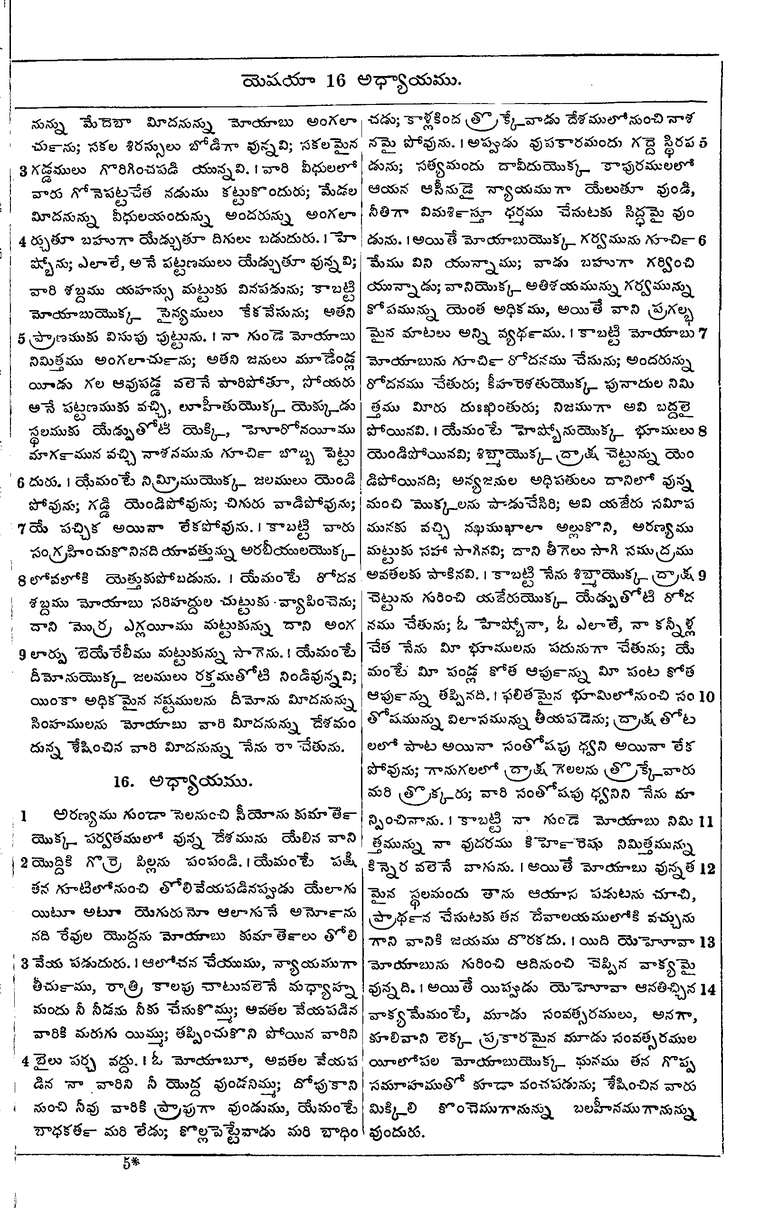 యెషయా 16 అధ్యాయము.
నున్ను మేదెబా మీదనున్ను మోయాబు అంగలా
చుఁను; సకల శిరస్సులు బోడిగా వున్నవి; సకలమైన
3 గడ్డములు గొరిగించపడి యున్నవి. । వారి వీధులలో
వారు గోనెపట్టచేత నడుము కట్టుకొందురు; మేడల
మీదనున్ను వీధులయందున్ను అందరున్ను అంగలా
4 ర్చుతూ బహుగా యేడ్చుతూ దిగులు బడుదురు. । హె
ష్బోను; ఎలాలే, అనే పట్టణములు యేడ్చుతూ వున్నవి;
వారి శబ్దము యహస్సు మట్టుకు వినపడును; కాబట్టి
మోయాబుయొక్క సైన్యములు కేకవేసును; అతని
5 ప్రాణముకు విసుపు పుట్టును. । నా గుండె మోయాబు
నిమిత్తము అంగలాచుఁను; అతని జనులు మూడేండ్ల
యీడు గల ఆవుపడ్డ వలెనే పారిపోతూ, సోయరు
అనే పట్టణముకు వచ్చి, లూహీతుయొక్క యెక్కుడు
స్థలముకు యేడ్పుతోటి యెక్కి, హొరోనయీము
మాగఁమున వచ్చి నాశనమును గూచిఁ బొబ్బ పెట్టు
6 దురు. । యేమంటే నిమ్రీముయొక్క జలములు యెండి
పోవును; గడ్డి యెండిపోవును; చిగురు వాడిపోవును;
7 యే పచ్చిక అయినా లేకపోవును. । కాబట్టి వారు
సంగ్రహించుకొనినది యావత్తున్ను అరబీయులయొక్క
8 లోవలోకి యెత్తుకుపోబడును. । యేమంటే రోదన
శబ్దము మోయాబు సరిహద్దుల చుట్టుకు వ్యాపించెను;
దాని మొర్ర ఎగ్లయీము మట్టుకున్ను దాని అంగ
9 లార్పు బెయేరేలీము మట్టుకున్ను సాగెను. । యేమంటే
దీమోనుయొక్క జలములు రక్తముతోటి నిండివున్నవి;
యింకా అధికమైన నష్టములను దీమోను మీదనున్ను
సింహములను మోయాబు వారి మీదనున్ను దేశమం
దున్న శేషించిన వారి మీదనున్ను నేను రా చేతును.
16. అధ్యాయము.
1 అరణ్యము గుండా సెలనుంచి సీయోను కుమాతెఁ
యొక్క పర్వతములో వున్న దేశమును యేలిన వాని
2 యొద్దికి గొర్రె పిల్లను పంపండి. । యేమంటే పక్షి
తన గూటిలోనుంచి తోలివేయపడినప్పుడు యేలాగు
యిటూ అటూ యెగురునో ఆలాగునే అమోఁను
నది రేవుల యొద్దను మోయాబు కుమాతెఁలు తోలి
3 వేయ పడుదురు. । ఆలోచన చేయుము, న్యాయముగా
తీచుఁము, రాత్రి కాలపు చాటువలెనే మధ్యాహ్న
మందు నీ నీడను నీకు చేసుకొమ్ము; అవతల వేయపడిన
వారికి మరుగు యిమ్ము; తప్పించుకొని పోయిన వారిని
4 బైలు పర్చ వద్దు. । ఓ మోయాబూ, అవతల వేయప
డిన నా వారిని నీ యొద్ద వుండనిమ్ము; దోపుకాని
నుంచి నీవు వారికి ప్రాపుగా వుండుము, యేమంటే
బాధకతఁ మరి లేడు; కొల్లపెట్టేవాడు మరి బాధిం
చడు; కాళ్లకింద త్రొక్కేవాడు దేశములోనుంచి నాశ
నమై పోవును. । అప్పుడు వుపకారమందు గద్దె స్థిరప 5
డును; సత్యమందు దావీదుయొక్క కాపురములలో
ఆయన ఆసీనుడై న్యాయముగా యేలుతూ వుండి,
నీతిగా విమశిఁస్తూ ధర్మము చేసుటకు సిద్ధమై వుం
డును. । అయితే మోయాబుయొక్క గర్వమును గూచిఁ 6
మేము విని యున్నాము; వాడు బహుగా గర్వించి
యున్నాడు; వానియొక్క అతిశయమున్ను గర్వమున్ను
కోపమున్ను యెంత అధికము, అయితే వాని ప్రగల్భ
మైన మాటలు అన్ని వ్యథఁము. । కాబట్టి మోయాబు 7
మోయాబును గూచిఁ రోదనము చేసును; అందరున్ను
రోదనము చేతురు; కీహరెశతుయొక్క పునాదుల నిమి
త్తము మీరు దుఃఖింతురు; నిజముగా అవి బద్దలై
పోయినవి. । యేమంటే హెష్బోనుయొక్క భూములు 8
యెండిపోయినవి; శిబ్మాయొక్క ద్రాక్ష చెట్టున్ను యెం
డిపోయినది; అన్యజనుల అధిపతులు దానిలో వున్న
మంచి మొక్కలను పాడుచేసిరి; అవి యజేరు సమీప
మునకు వచ్చి నఖముఖాలా అల్లుకొని, అరణ్యము
మట్టుకు సహా సాగినవి; దాని తీగెలు సాగి సముద్రము
అవతలకు పాకినవి. । కాబట్టి నేను శిబ్మాయొక్క ద్రాక్ష 9
చెట్టును గురించి యజేరుయొక్క యేడ్పుతోటి రోద
నము చేతును; ఓ హేష్బోనా, ఓ ఎలాలే, నా కన్నీళ్ల
చేత నేను మీ భూములను పదునుగా చేతును; యే
మంటే మీ పండ్ల కోత ఆపుఁన్ను మీ పంట కోత
ఆపుఁన్ను తప్పినది. । ఫలితమైన భూమిలోనుంచి సం 10
తోషమున్ను విలాసమున్ను తీయపడెను; ద్రాక్ష తోట
లలో పాట అయినా సంతోషపు ధ్వని అయినా లేక
పోవును; గానుగలలో ద్రాక్ష గెలలను త్రొక్కేవారు
మరి త్రొక్కరు; వారి సంతోషపు ధ్వనిని నేను మా
న్పించినాను. । కాబట్టి నా గుండె మోయాబు నిమి 11
త్తమున్ను నా వుదరము కిర్‌హెరెషు నిమిత్తమున్ను
కిన్నెర వలెనే వాగును. । అయితే మోయాబు వున్నత 12
మైన స్థలమందు తాను ఆయాస పడుటను చూచి,
ప్రాథఁన చేసుటకు తన దేవాలయములోకి వచ్చును
గాని వానికి జయము దొరకదు. । యిది యెహోవా 13
మోయాబును గురించి ఆదినుంచి చెప్పిన వాక్యమై
వున్నది. । అయితే యిప్పుడు యెహోవా ఆనతిచ్చిన 14
వాక్యమేమంటే, మూడు సంవత్సరములు, అనగా,
కూలివాని లెక్క ప్రకారమైన మూడు సంవత్సరముల
యీలోపల మోయాబుయొక్క ఘనము తన గొప్ప
సమూహముతో కూడా వంచపడును; శేషించిన వారు
మిక్కిలి కొంచెముగానున్ను బలహీనముగానున్ను
వుందురు.
5*